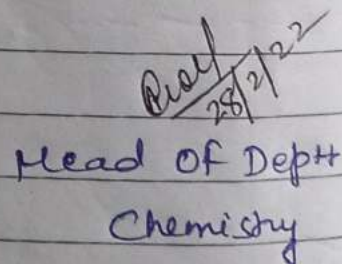 28/2/22
Head Of Deptt
Chemistry